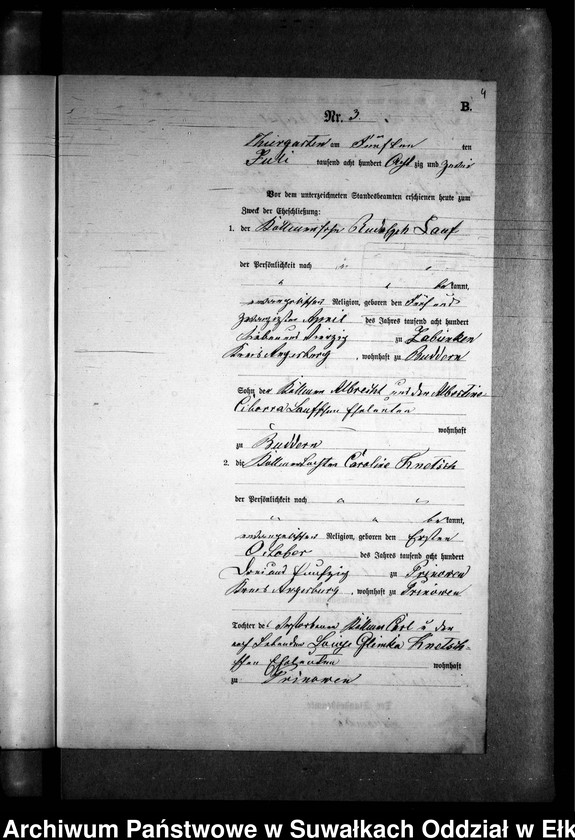 4
B.
Nr. 3.
Thiergarten am Fünften ten
Juli tausend acht hundert Acht zig und zwei
Vor dem unterzeichneten Standesbeamten erschienen heute zum
Zweck der Eheschließung:
1. der Köllmersohn Rudolph Lauf
der Persönlichkeit nach
be kannt,
evangelischer Religion, geboren den Fünf und
zwanzigsten April des Jahres tausend acht hundert
Sieben und vierzig zu Zabinken
Kreis Angerburg, wohnhaft zu Buddern
Sohn des Köllmer Albrecht und der Albertine
Ciborra Lauf'schen Eheleuten
wohnhaft
zu Buddern
2. die Köllmertochter Caroline Knetsch
der Persönlichkeit nach
be kannt,
evangelischer Religion, geboren den Ersten
October des Jahres tausend acht hundert
Drei und Fünfzig zu Prinowen
Kreis Angerburg, wohnhaft zu Prinowen
Tochter des verstorbenen Köllmer Carl u der
noch lebenden Glimka Knetsch-
schen Eheleuten wohnhaft
zu Prinowen
Archiwum Państwowe w Suwałkach Oddział w Ełk